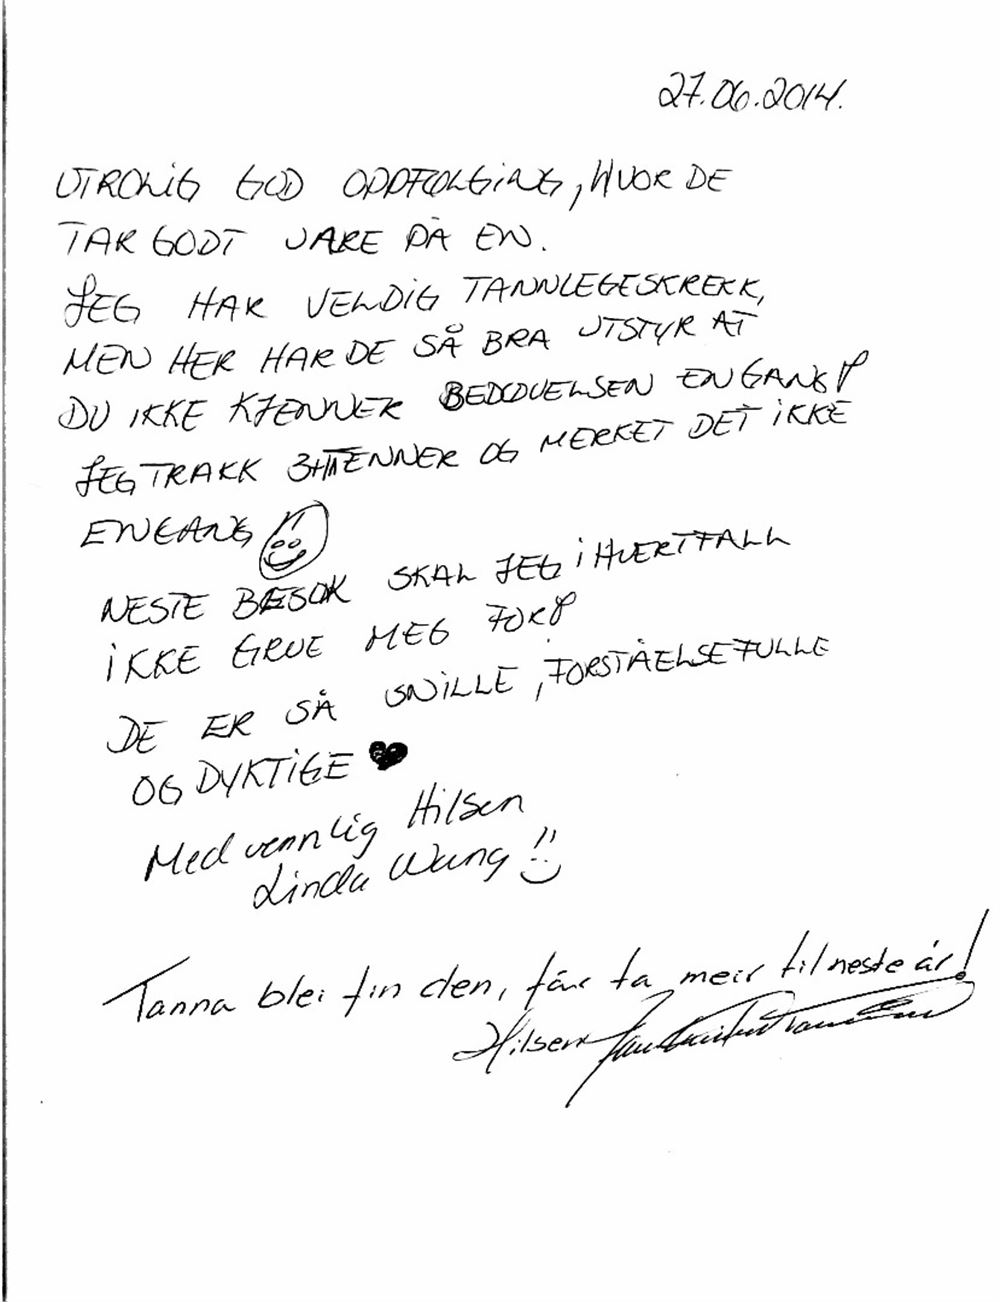 27.06.2014.
UTROLIG GOD OPPFØLGING, HVOR DE
TAR GODT VARE PÅ EN.
JEG HAR VELDIG TANNLEGESKREKK,
MEN HER HAR DE SÅ BRA UTSTYR AT
DU IKKE KJENNER BEDØVELSEN ENGANG!
JEG TRAKK 3 TENNER OG MERKET DET IKKE
ENGANG
NESTE BESØK SKAL JEG I HVERTFALL
IKKE GRUE MEG FOR!
DE ER SÅ SNILLE, FORSTÅELSEFULLE
OG DYKTIGE ♥
Med vennlig Hilsen
Linda Wang
Tanna blei fin den, får ta meir til neste år!
Hilsen